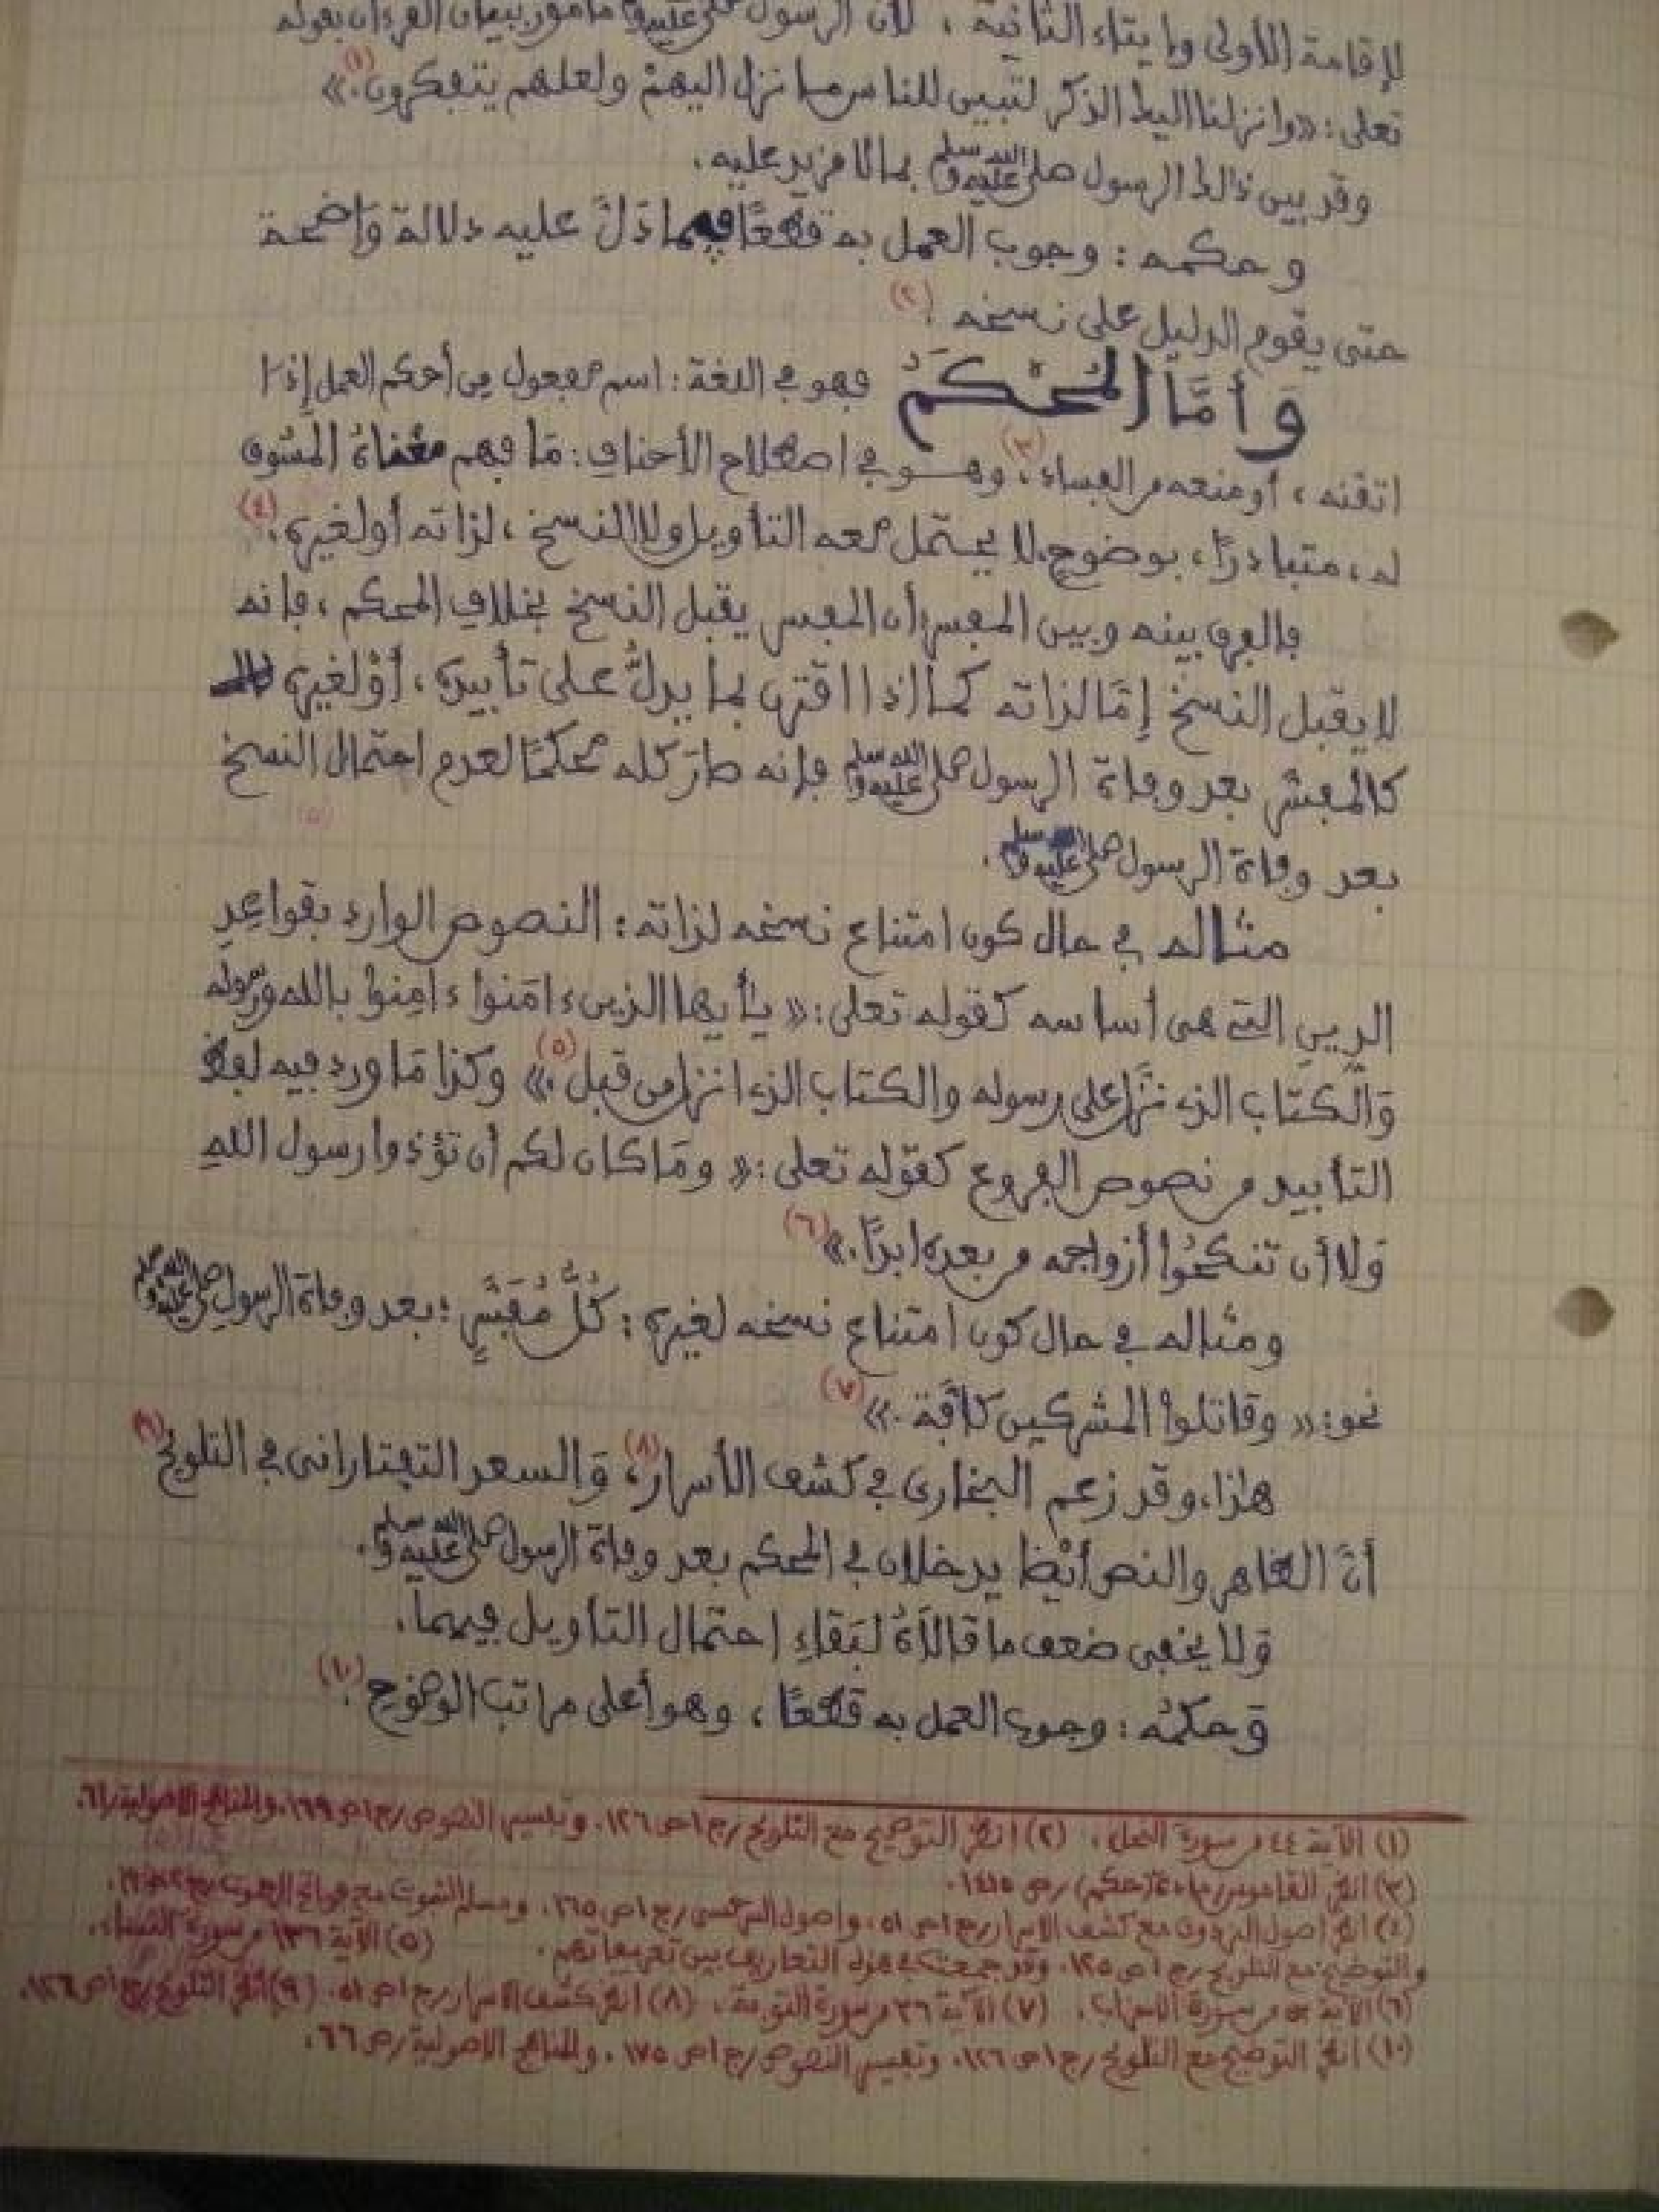 لإقامة الأولى وإيتاء الثانية ، لأن الرسول صلى الله عليه وسلم مأمور ببيان القرءان بقوله
تعلى : «وانزلنا اليك الذكر لتبين للناس ما نزل اليهم ولعلهم يتفكرون.» (١)
وقد بين ذالك الرسول صلى الله عليه وسلم بمالا مزيد عليه .
و حكمه : وجوب العمل به قطعًا فيما دَلَّ عليه دلالة وَاضحة
حتى يقوم الدليل على نسخه . (٢)
وَأمَّا المُحْكَمُ فهو في اللغة : اسم مفعول من أحكم العمل إذَا
اتقنه ، أو منعه من الفساد ، (٣) وهــو في اصطلاح الأحناف : مَا فهم معْناهُ المَسُوق
له ، متبادرًا ، بوضوح لا يحتمل معه التأويل ولا النسخ ، لذاته أو لغيره . (٤)
فالفرق بينه وبين المفسر أن المفسر يقبل النسخ بخلاف المحكم ، فإنه
لا يقبل النسخ إمَّا لذاته كما إذا اقترن بما يدلُّ على تأبيده ، أوْ لغيره
كالمفسَّر بعد وفاة الرسول صلى الله عليه وسلم فإنه صَارَ كله محكمًا لعدم احتمال النسخ
(٥)
بعد وفاة الرسول صلى الله عليه وسلم .
مثاله في حال كون امتناع نسخه لذاته : النصوص الوارد بقواعِدِ
الدِينِ التي هى أساسه كقوله تعلى : «يأيها الذين ءامَنوا ءامِنوا بالله ورَسوله
وَالكتاب الذى نَزَّل على رسوله والكتاب الذى انزل من قبل .» (٥) وكذا مَا ورد فيه لفظ
التأبيد من نصوص الفروع كقوله تعلى : «ومَا كان لكم أن تؤذوا رسول اللهِ
وَلا أن تنكحُوا أزواجه من بعده ابدًا .» (٦)
ومثاله في حال كون امتناع نسخه لغيره : كُلُّ مُفَسَّرٍ ؛ بعد وفاة الرسول صلى الله عليه وسلم
نحو : «وقاتلوا المشركين كافّة .» (٧)
هاذا ، وقد زعم البخارى في كشف الأسرار ، (٨) وَالسعد التفتازانى في التلويح (٩)
أنَّ الظاهر والنص أيْضا يدخلان في المحكم بعد وفاة الرسول صلى الله عليه وسلم .
وَلا يخفى ضعف ما قالاَهُ لبَقاءِ احتمال التأويل فيهما .
وَحكمُه : وجوب العمل به قطعًا ، وهو أعلى مراتب الوضوح . (١٠)
(١) الآية ٤٤ من سورة النحل . (٢) انظر التوضيح مع التلويح / ج ١ ص ١٢٦ . وتفسير النصوص / ج ١ ص ١٦٩ . والمناهج الاصولية / ٦١ .
(٣) انظر القاموس / مادة (حكم) / ص ١٤١٥ .
(٤) انظر اصول البزدوى مع كشف الاسرار / ج ١ ص ٥١ ، واصول السرخسى / ج ١ ص ١٦٥ . ومسلم الثبوت مع فواتح الرحموت / ج ٢ .
والتوضيح مع التلويح / ج ١ ص ١٢٥ . وقد جمعت في هذه التعاريف بين تعريفاتهم . (٥) الآية ١٣٦ من سورة النساء .
(٦) الآية ٥٣ من سورة الاحزاب . (٧) الآية ٣٦ من سورة التوبة . (٨) انظر كشف الاسرار / ج ١ ص ٥١ . (٩) انظر التلويح / ج ١ ص ١٢٦ .
(١٠) انظر التوضيح مع التلويح / ج ١ ص ١٢٦ . وتفسير النصوص / ج ١ ص ١٧٥ . والمناهج الاصولية / ص ٦٦ .